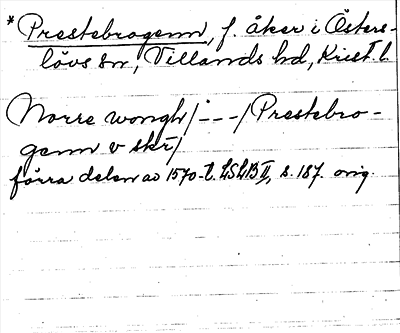 * Prestebrogenn, f. åker i Östers-
lövs sn, Villands hd, Krist. l.
Norre wongh /---/ Prestebro-
genn v skr/
förra delen av 1570-t. LSLB II, s. 187. orig.